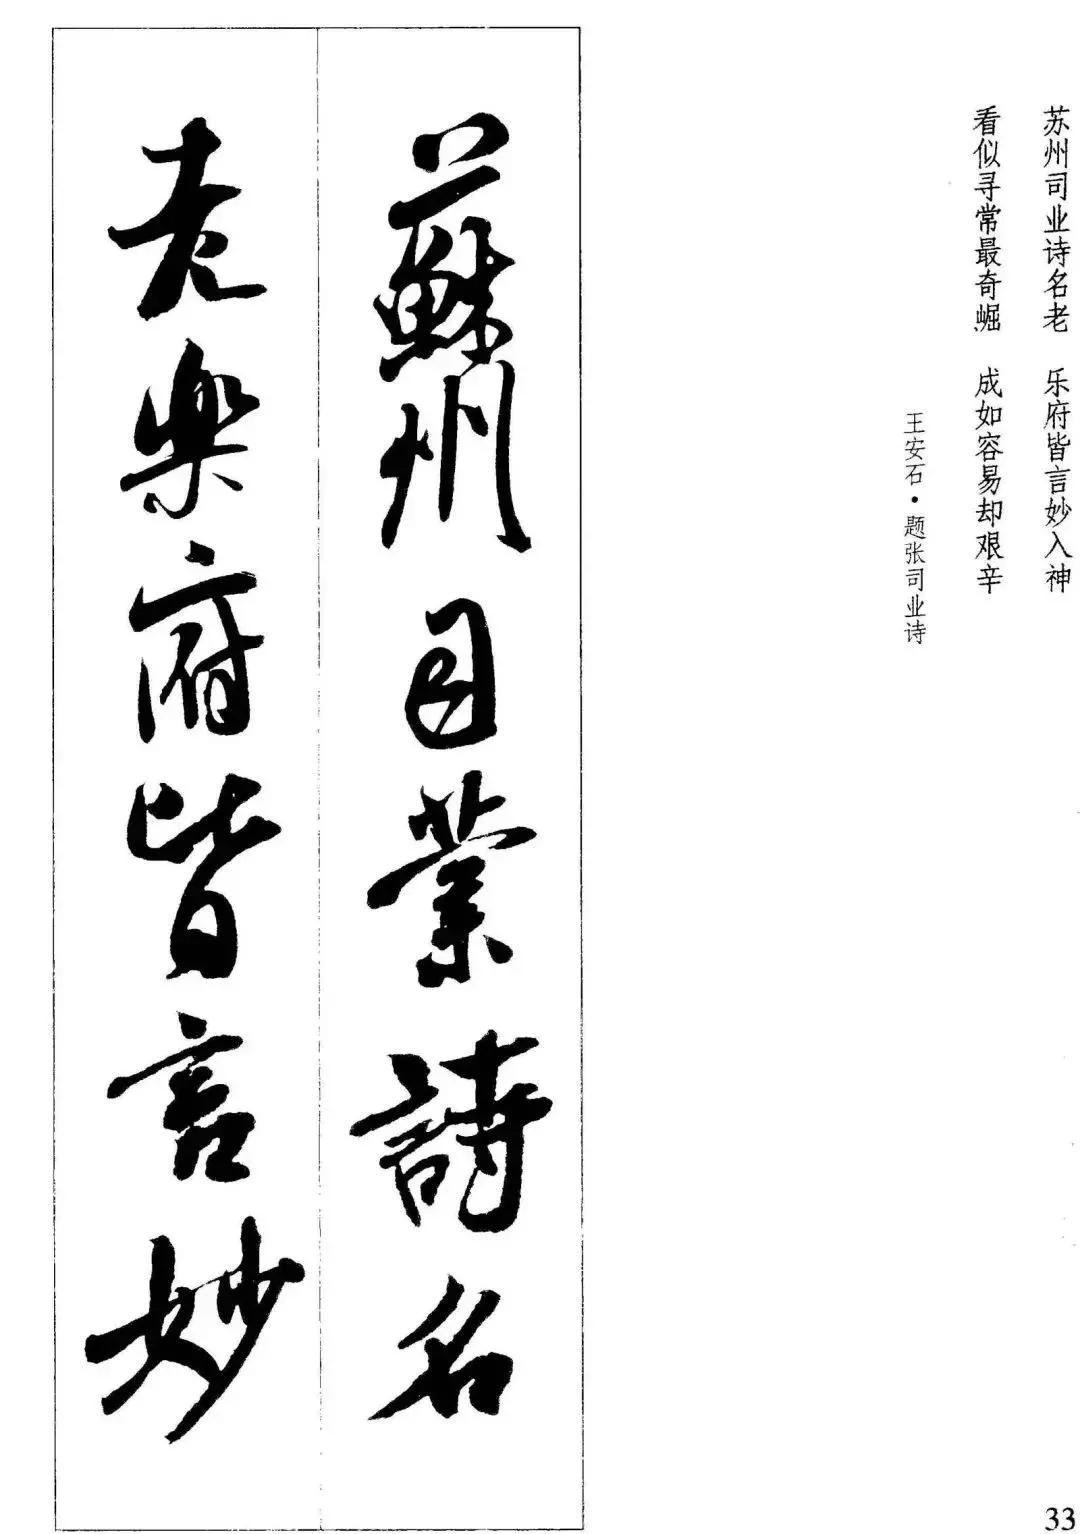 苏州司业诗名老　乐府皆言妙入神
看似寻常最奇崛　成如容易却艰辛
王安石·题张司业诗
蘇州司業詩名
老樂府皆言妙
33